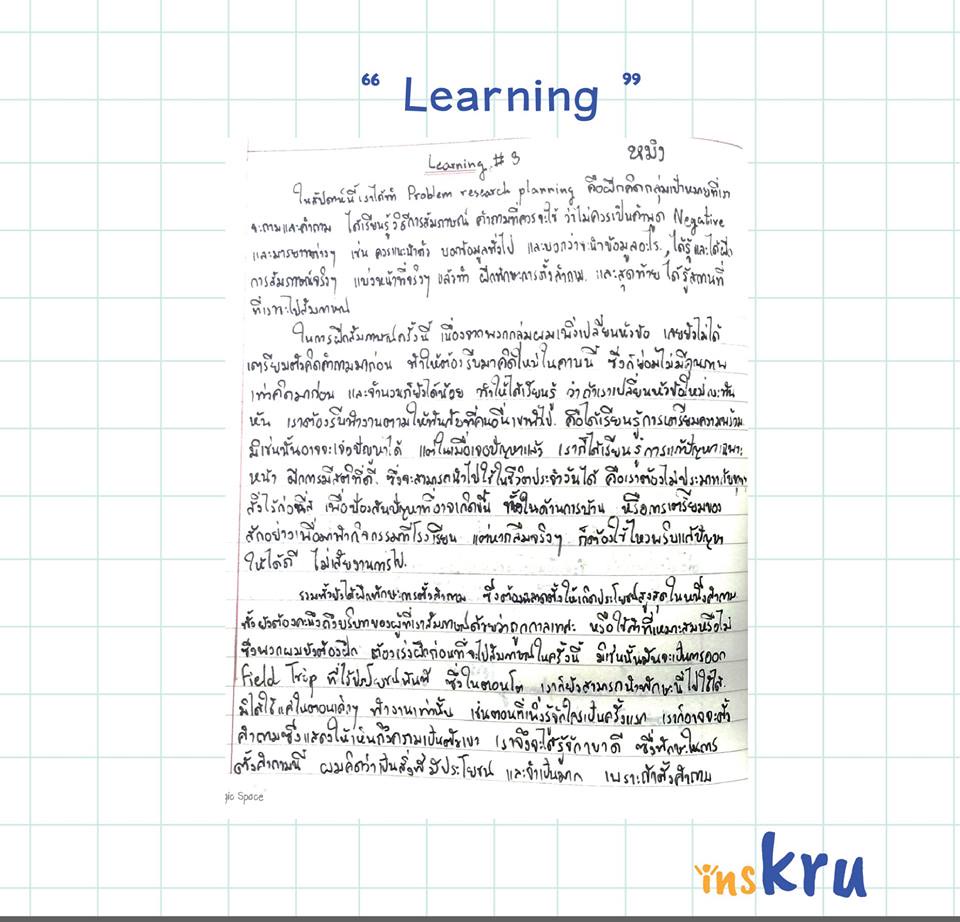 “ Learning ”
Learning # 3 หมิง
ในสัปดาห์นี้เราได้ทำ Problem research planning คือฝึกคิดกลุ่มเป้าหมายที่เรา
จะถามและคำถาม ได้เรียนรู้วิธีการสัมภาษณ์ คำถามที่ควรจะใช้ ว่าไม่ควรเป็นคำพูด Negative
และมารยาทต่างๆ เช่น ควรแนะนำตัว บอกข้อมูลทั่วไป และบอกว่าจะนำข้อมูลอะไร, ได้รู้และได้ฝึก
การสัมภาษณ์จริงๆ แบ่งหน้าที่จริงๆ แล้วทำ ฝึกทักษะการตั้งคำถาม, และสุดท้าย ได้รู้สถานที่
ที่เราจะไปสัมภาษณ์
ในการฝึกสัมภาษณ์ครั้งนี้ เนื่องจากพวกกลุ่มผมเพิ่งเปลี่ยนหัวข้อ เลยยังไม่ได้
เตรียมตัวคิดคำถามมาก่อน ทำให้ต้องรีบมาคิดใหม่ในคาบนี้ ซึ่งก็ย่อมไม่มีคุณภาพ
เท่าคิดมาก่อน และจำนวนก็ยังได้น้อย ทำให้ได้เรียนรู้ ว่าถ้าเราเปลี่ยนหัวข้อใหม่กะทัน
หัน เราต้องรีบทำงานตามให้ทันสิ่งที่คนอื่นเขาทำไป. คือได้เรียนรู้การเตรียมความพร้อม
มิเช่นนั้นอาจจะเจอปัญหาได้ แต่ในเมื่อเจอปัญหาแล้ว เราก็ได้เรียนรู้การแก้ปัญหาเฉพาะ
หน้า ฝึกการมีสติที่ดี. ซึ่งจะสามารถนำไปใช้ในชีวิตประจำวันได้ คือเราต้องไม่ประมาท
เพื่อป้องกันปัญหาที่อาจเกิดขึ้น ทั้งในด้านการบ้าน หรือการเตรียมของ
สักอย่างเพื่อมาทำกิจกรรมที่โรงเรียน แต่หากลืมจริงๆ ก็ต้องใช้ไหวพริบแก้ปัญหา
ให้ได้ดี ไม่เสียงานการไป.
รวมทั้งยังได้ฝึกทักษะการตั้งคำถาม ซึ่งต้องฉลาดตั้งให้เกิดประโยชน์สูงสุดในหนึ่งคำถาม
ทั้งยังต้องคะนึงถึงบริบทของผู้ที่เราสัมภาษณ์ด้วยว่าถูกกาลเทศะ หรือใช้คำที่เหมาะสมหรือไม่
ซึ่งพวกผมยังต้องฝึก ต้องเร่งฝึกก่อนที่จะไปสัมภาษณ์ในครั้งนี้ มิเช่นนั้นมันจะเป็นการออก
Field Trip ที่ไร้ประโยชน์ทันที ซึ่งในตอนโต เราก็ยังสามารถนำทักษะนี้ไปใช้ได้.
มิได้ใช้แค่ในตอนเด็กๆ ทำงานเท่านั้น เช่นตอนที่เพิ่งรู้จักใครเป็นครั้งแรก เราก็อาจจะตั้ง
คำถามซึ่งแสดงให้เห็นถึงความเป็นตัวเขา เราจึงจะได้รู้จักเขาดี ซึ่งทักษะในการ
ตั้งคำถามนี้ ผมคิดว่าเป็นสิ่งที่มีประโยชน์ และจำเป็นมาก เพราะถ้าตั้งคำถาม
gic Space
inskru